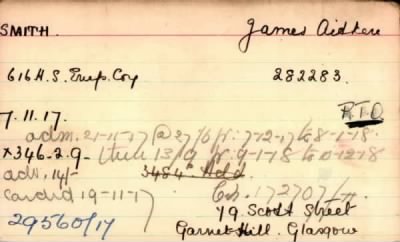 SMITH. James Aitken
616 H.S. Emp. Coy 282283.
7.11.17. R.T.O
adm. 21-11-17 @ 27/6 fr. 7-12-17 to 8-1-18.
x346.2.9. 13/9 fr. 9-1-18 to 0-12-18
adv. 14/- 3484 Add
Cardd 19-11-17 172707/
29560/17 79 Scott Street
Garnet Hill. Glasgow